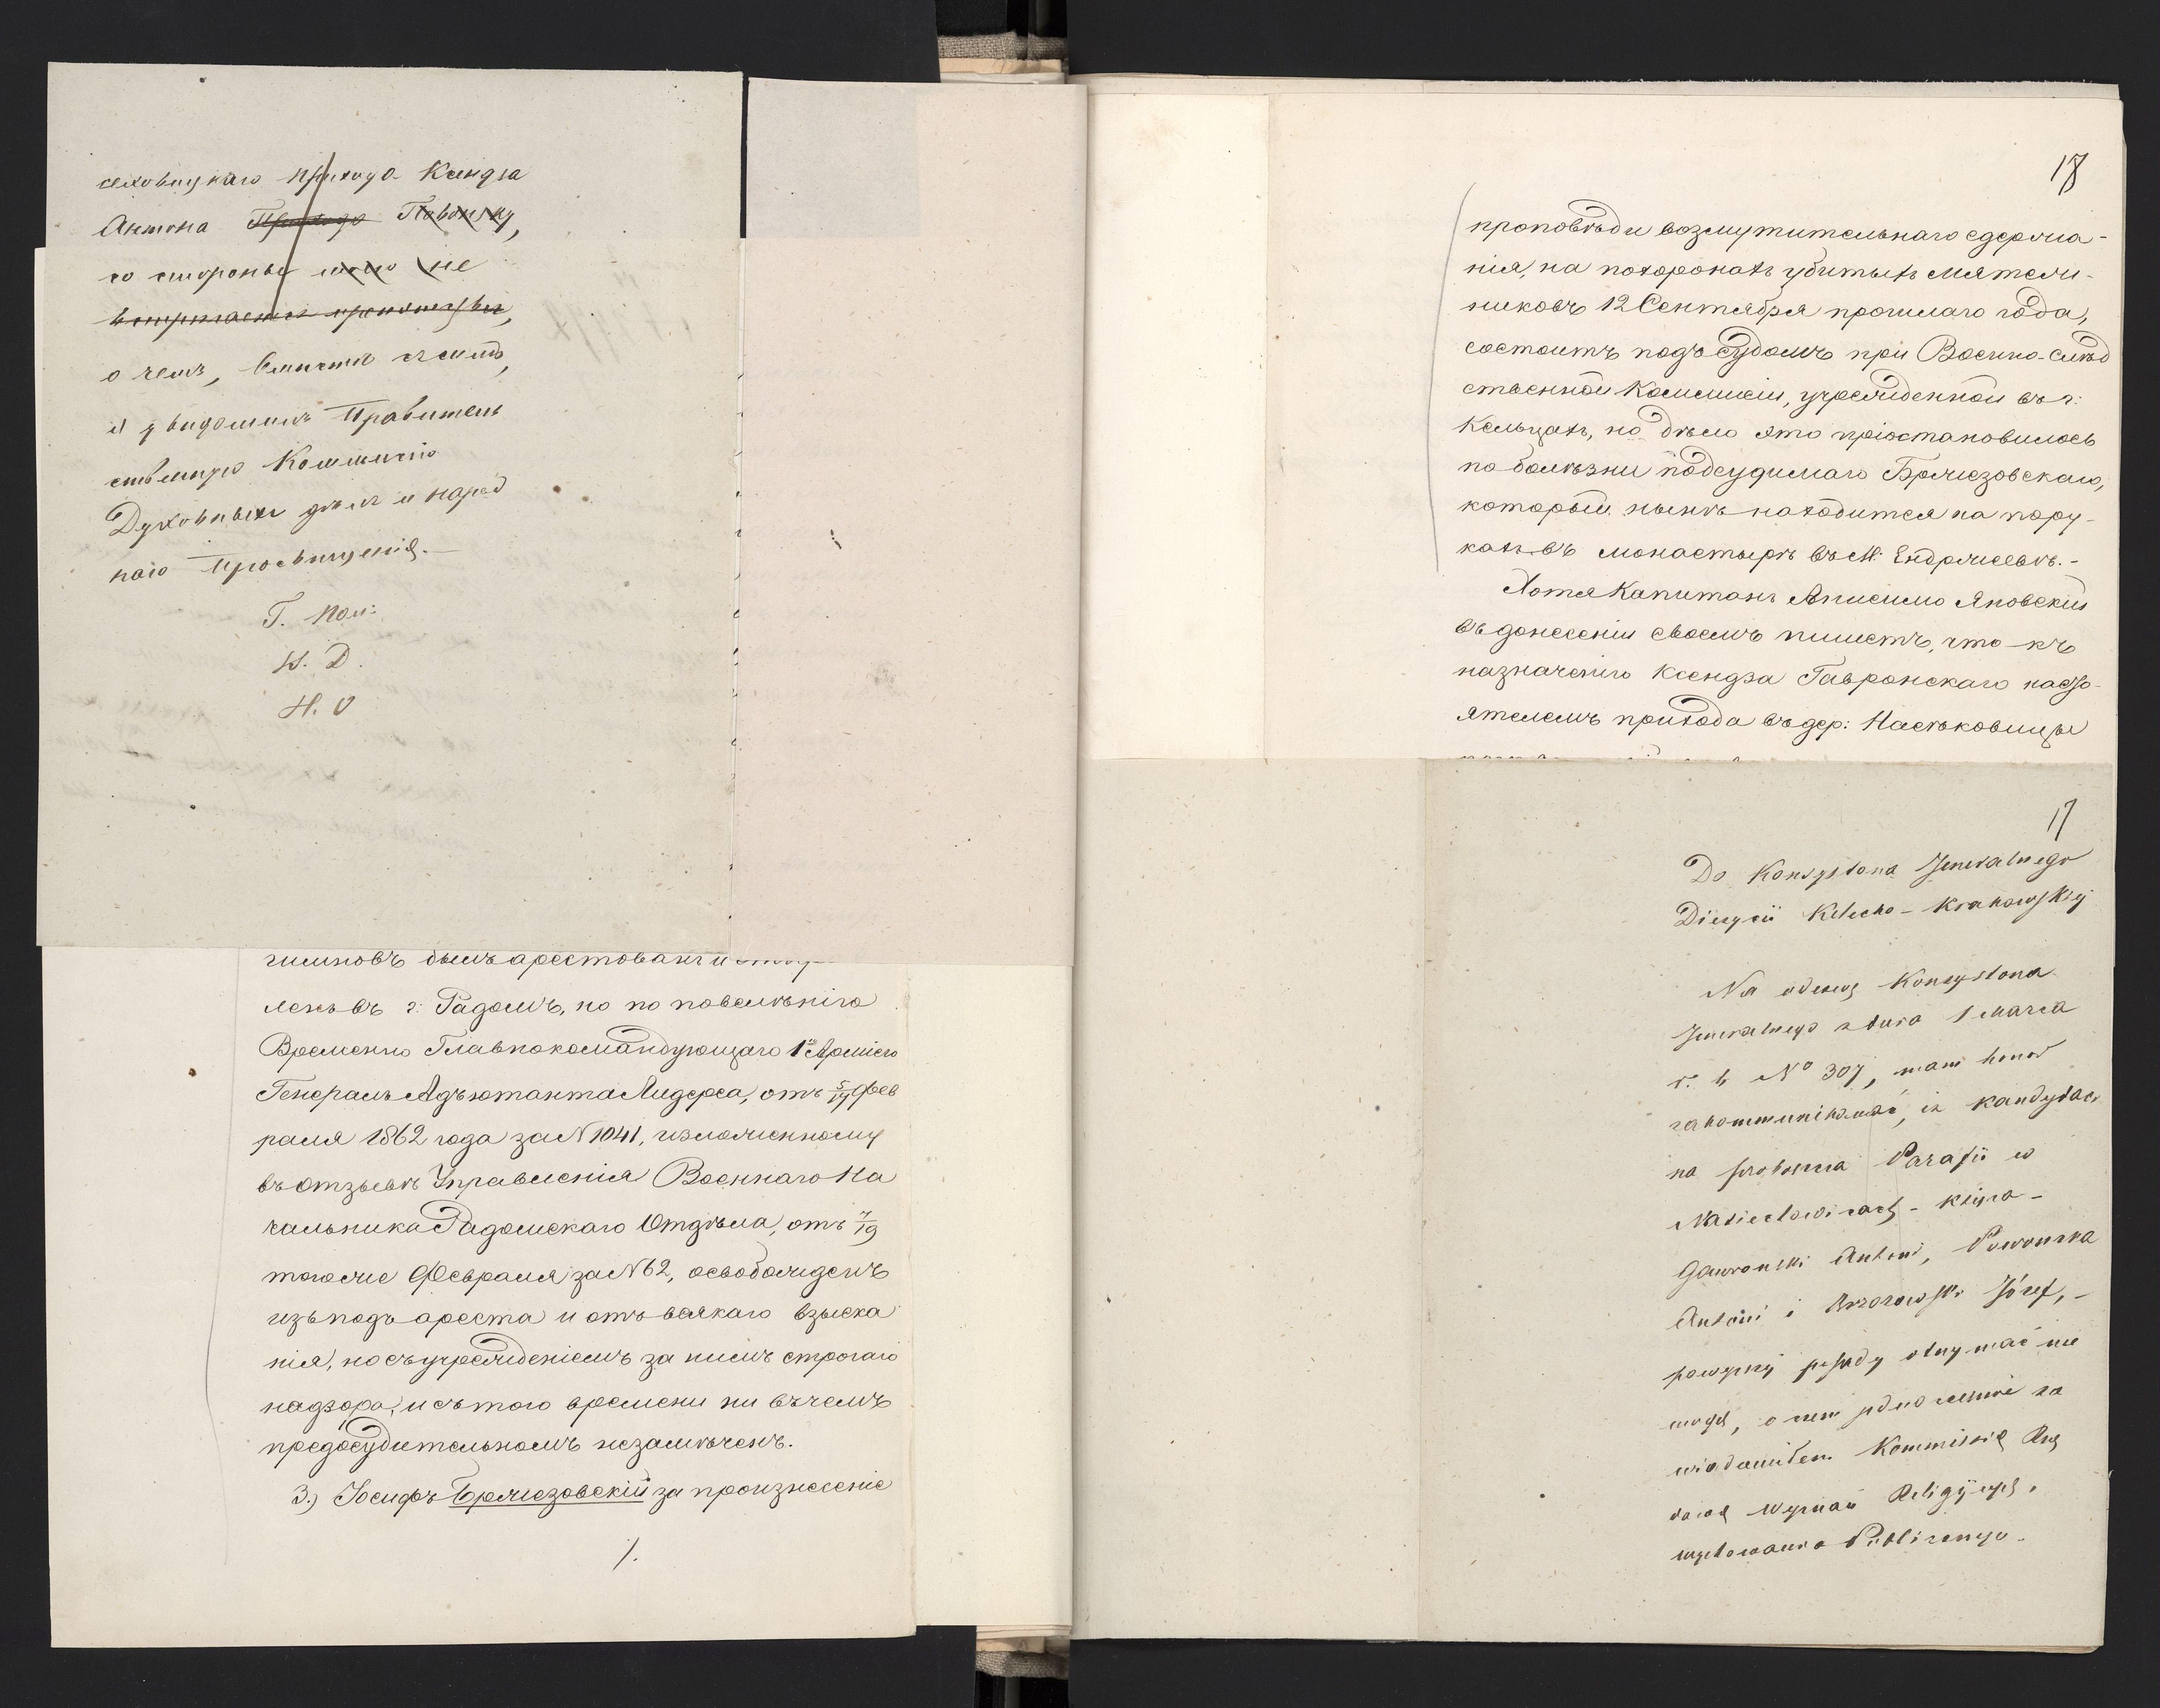 сѣховицкаго прихода Ксендза
Антона Прихода Повонску,
со стороны не
о чемъ, вмѣстѣ съ симъ,
я увѣдомилъ Правитель
ственную Коммисію
Духовныхъ дѣлъ и Народ
наго Просвѣщенія.—
Г. Нач:
К. Д.
Н. О
гимновъ былъ арестованъ и
ленъ въ г: Радомъ, но по повелѣнію
Временно Главнокомандующаго 1ю Арміею
Генералъ Адъютанта Лидерса, отъ 5/17 Фев
раля 1862 года за N 1041, изложенному
въ отзывѣ Управленія Военнаго На
чальника Радомскаго Отдѣла, отъ 7/19
тогоже Февраля за N 62, освобожденъ
изъ подъ ареста и отъ всякаго взыска
нія, но съ учрежденіемъ за нимъ строгаго
надзора, и съ того времени ни въ чемъ
предосудительномъ незамѣченъ.
3.) Іосифъ Бржезовскій за произнесеніе
/.
18
проповѣди возмутительнаго содержа-
нія, на похоронахъ убитыхъ мятеж-
никовъ 12 Сентября прошлаго года,
состоитъ подъ судомъ при Военно-слѣд
ственной Коммисіи, учрежденной въ г:
Кельцахъ, но дѣло это пріостановилось
по болѣзни подсудимаго Бржезовскаго,
который нынѣ находится на пору-
кахъ въ монастырѣ въ М: Ендржеевѣ.-
Хотя Капитанъ Анисимо Яновскій
въ донесеніи своемъ пишетъ, что къ
назначенію Ксендза Гавронскаго насто-
ятелемъ прихода въ дер: Насѣховицы
17
Do Konsystorza Jeneralnego
Dyecezii Kielecko-Krakowskiej
Na odezwę Konsystorza
Jeneralnego z dnia 1 Marca
r. b. No 307, mam honor
zakommunikować, iż kandydaci
na proboszcza Parafii w
Nasiechowicach - Księża -
Gawronski Antoni, Powonska
Antoni i Brzozowski Józef, -
powyższej posady otrzymać nie
mogą, o czem jednocześnie za
wiadomiłem Kommissię Rzą
dową Wyznań Religijnych i
wychowania Publicznego.